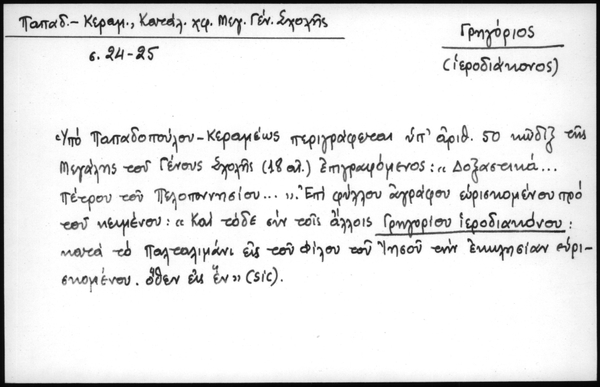 Παπαδ.- Κεραμ., Κατάλ. χφ. Μεγ. Γέν. Σχολῆς
Γρηγόριος
σ. 24-25
(ἱεροδιάκονος)
Ὑπό Παπαδοπούλου-Κεραμέως περιγράφεται ὑπ' ἀριθ. 50 κῶδιξ τῆς
Μεγάλης τοῦ Γένους Σχολῆς (18 αἰ.) ἐπιγραφόμενος: «Δοξαστικά...
πέτρου τοῦ Πελοποννησίου...». Ἐπί φύλλου ἀγράφου εὑρισκομένου πρό
τοῦ κειμένου: «Καί τόδε σύν τοῖς ἄλλοις Γρηγορίου ἱεροδιακόνου:
κατά τό Παλταλιμάνι εἰς τοῦ Φίλου τοῦ Ἰησοῦ τήν ἐκκλησίαν εὑρι-
σκομένου. ὅθεν εἰς ἕν» (sic).